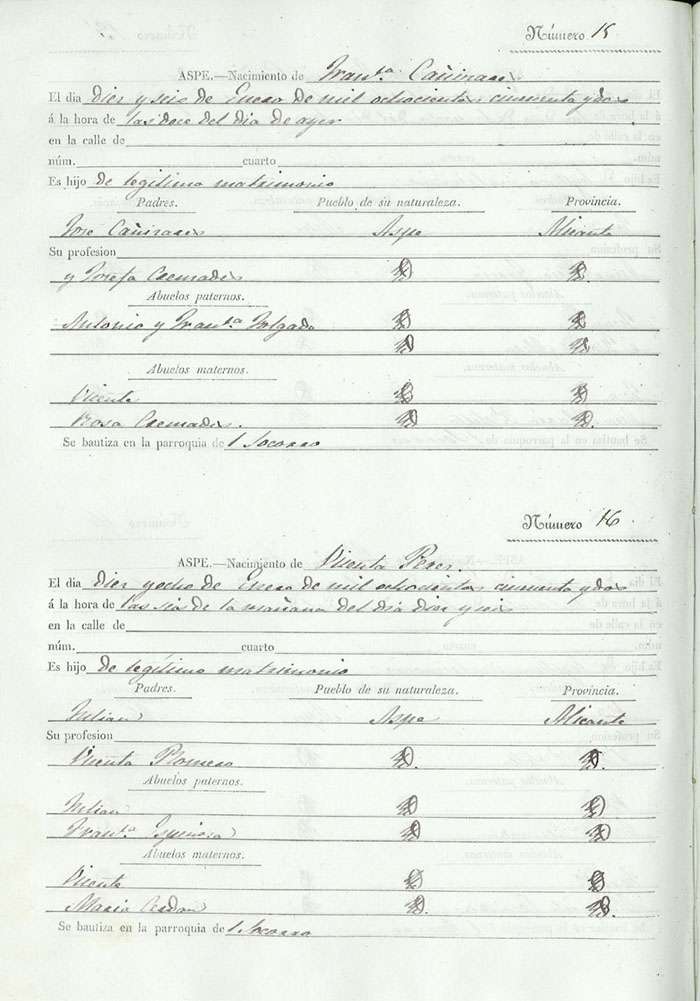 Número 15
ASPE.—Nacimiento de Fran.ca Cañizares
El dia diez y seis de Enero de mil ochocientos cincuenta y dos
á la hora de las doce del dia de ayer
en la calle de
núm. cuarto
Es hijo de legitimo matrimonio
Padres. Pueblo de su naturaleza. Provincia.
Jose Cañizares Aspe Alicante
Su profesion
y Josefa Cremades D D.
Abuelos paternos.
Antonio y Fran.ca D D
D D
Abuelos maternos.
Vicente D D
Rosa Cremades. D D.
Se bautiza en la parroquia de l Socorro
Número 16
ASPE.—Nacimiento de Vicenta Perez.
El dia diez y ocho de Enero de mil ochocientos cincuenta y dos
á la hora de las seis de la mañana del dia diez y seis
en la calle de
núm. cuarto
Es hijo de legitimo matrimonio
Padres. Pueblo de su naturaleza. Provincia.
Julian Aspe Alicante
Su profesion
Vicenta D. D.
Abuelos paternos.
Julian D D
Fran.ca Espinosa D D
Abuelos maternos.
Vicente D D
Maria D. D.
Se bautiza en la parroquia de l Socorro